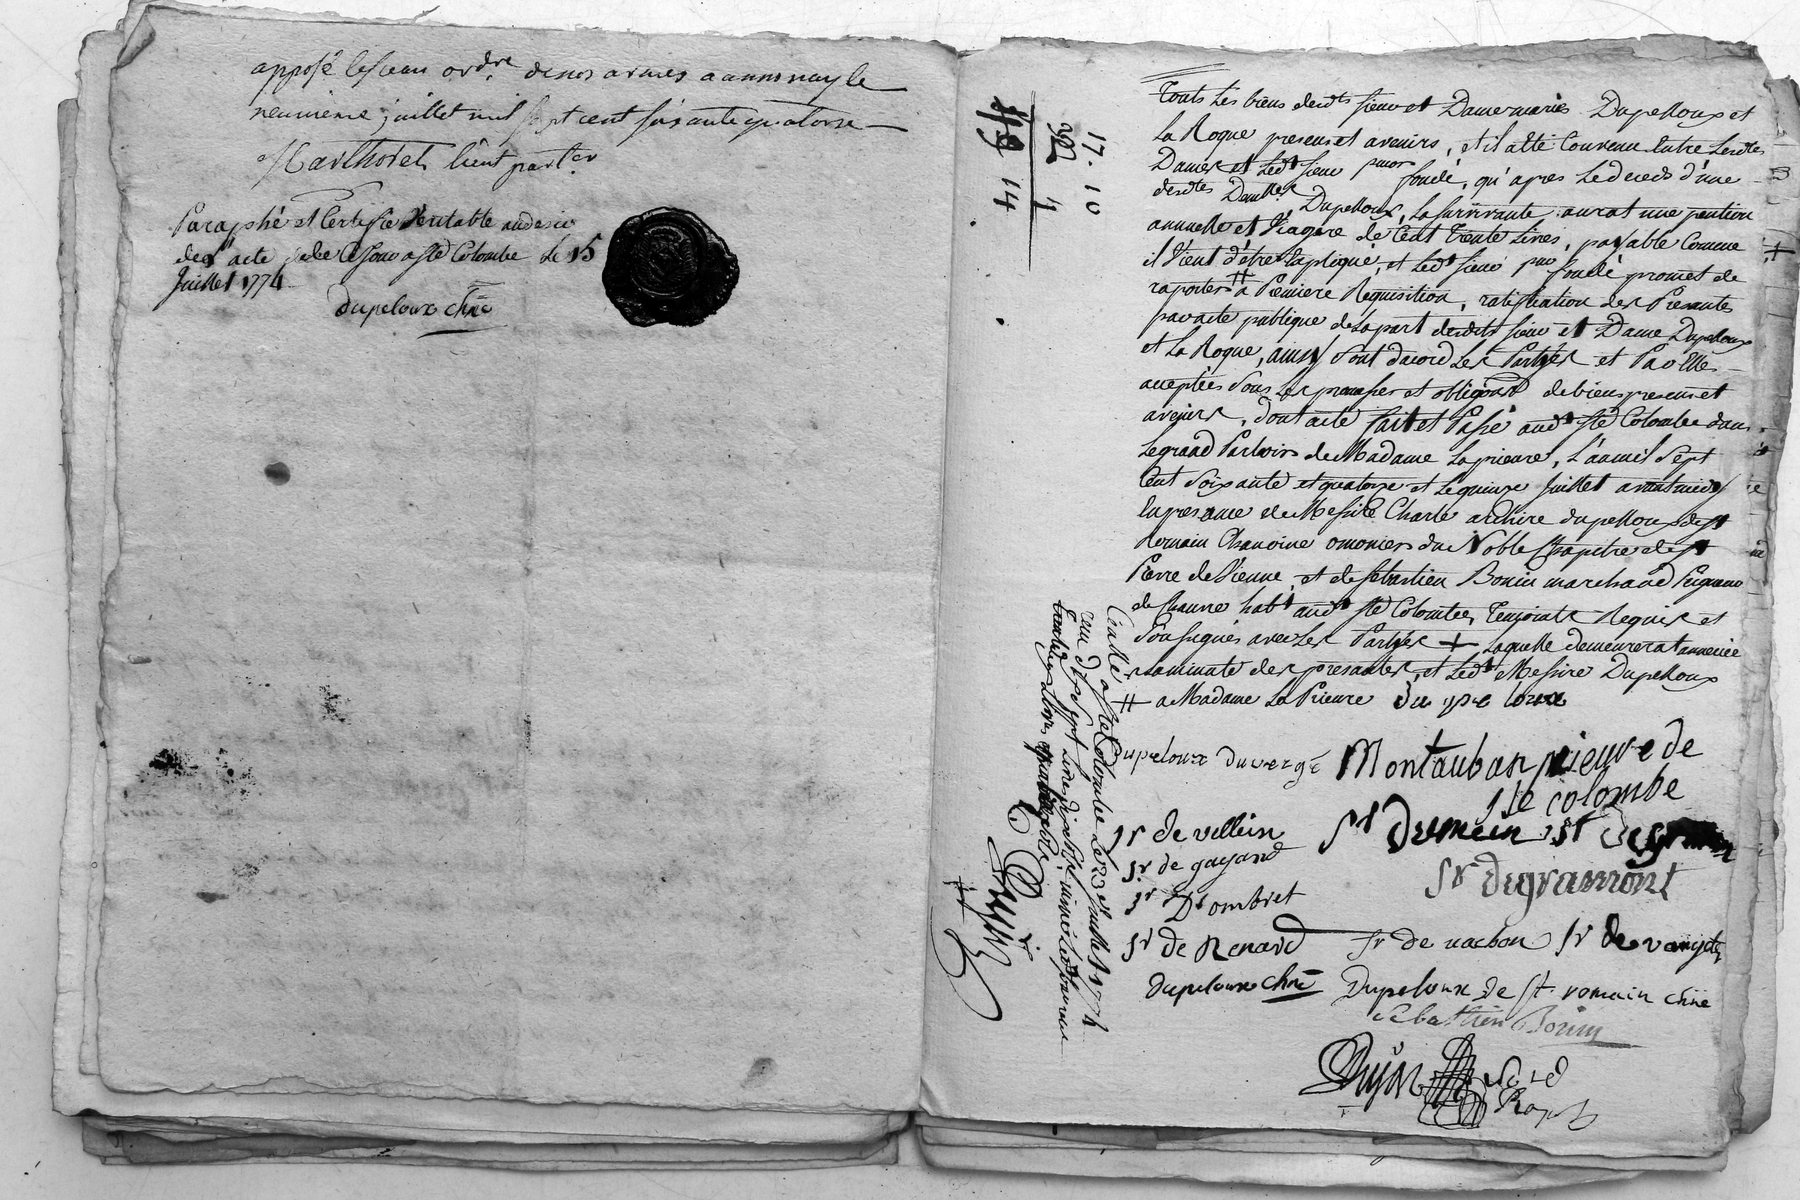 apposé le sceau ord.re de nos armes a annonay le
neuvieme juillet mil sept cent soixante quatorze
lieut part.er
Paraphé et Certifié Veritable au desir
de l'acte de ce jour a Ste Colombe le 15
Juillet 1774
dupeloux chne
17. 10
392 4
14
Touts les biens desdts sieur et Dame mariés Dupelloux et
La Roque presens et avenirs, et il a été Convenu Entre lesdtes
Dames et ledt sieur pror fondé, qu'apres le deceds d'une
desdtes Dlles Dupelloux, la survivante aurat une pention
annuelle et Viagere de Cent Trente Livres, payable Comme
il Vient d'être Expliqué, et ledt sieur pror fondé promet de
raporter # a Premiere Requisition, ratification des Presentes
par acte publique de la part desdits sieur et Dame Dupelloux
et La Roque, ainsy sont d'acord les Parties et Par Elles
acceptées sous les promesses et obligãons de biens presens et
avenirs, dont acte fait et Passé audt Ste Colombe dans
le grand Parloir de Madame la prieure, L'an mil sept
Cent soixante et quatorze et le quinze Juillet avant midy
En presence de Messire Charle dupelloux de St
Romain Chanoine omonier du Noble Chapitre de St
Pierre de Vienne, et de sebastien Bonin marchand Peigneur
de Chanvre habt audt Ste Colombe, Temoints Requis et
soussignés avec les Parties + Laquelle demeurerat annexée
a la minute des presantes, et ledt Messire Dupelloux
# a Madame La Prieure du pe loux
dupeloux du vergé Montauban prieure de
ste colombe
sr de vellein sr dumein st
sr de gayand sr degramont
sr Dombret
sr de Renard sr de nachon sr de
dupeloux chne Dupeloux de st. romain chne
sebastien Bonin
Controllé a Ste Colombe le 23 Juillet 1774